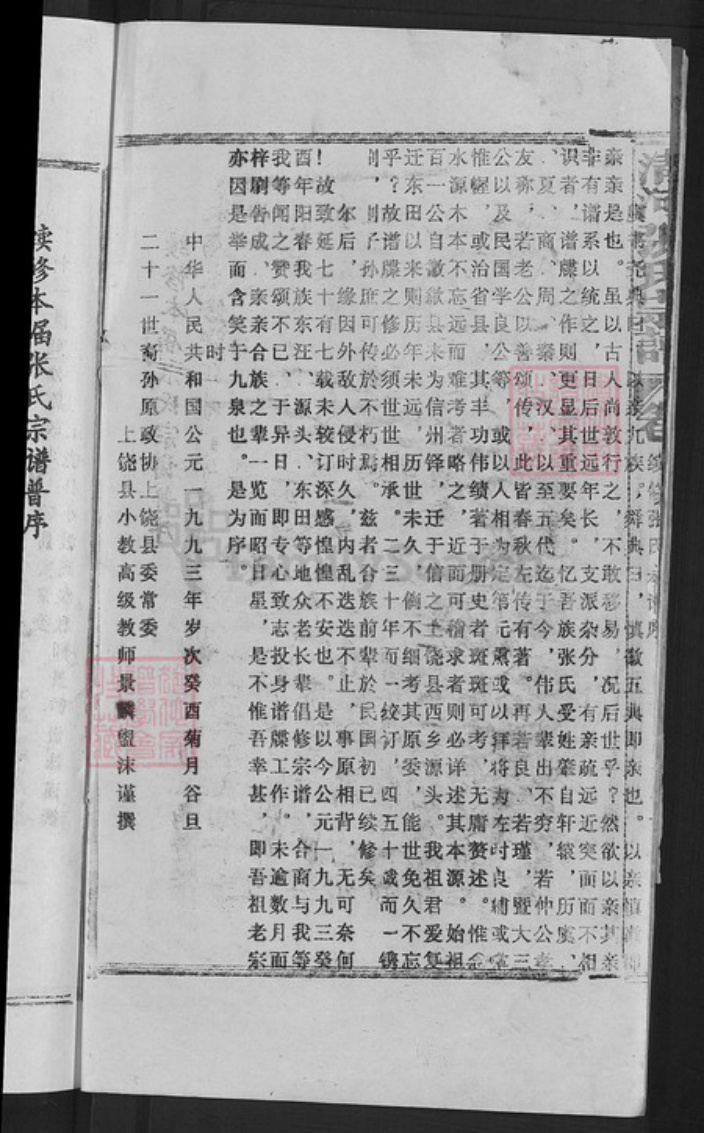 续修张氏宗谱序
以亲九族。舜典曰，慎徽五典即亲也。以亲慎徽即
亲亲是也。虽以古人尚敦行之，不敢移易，况后世乎？然欲以亲其亲
幸有谱系以统之，日后世远年长，支派杂分，有亲疏远近突面而不相
识者，谱牒之作则更显其重要矣。忆吾族张氏受姓肇自轩辕，历虞、
、夏、商、周、秦、汉、以至五代迄于今，伟人辈出不穷，若仲公孝
友称，若老公以善颂传，此皆春秋左传有著。再若良、若瑾，暨大三
公以及民国学良公等，或以人相为定第元勳或以拜将为左时良辅或掌
惟幄，或治省县，其丰功伟绩著于册史者斑斑可考，无庸赘述。惟念
水源木本不忘远而难考者略之，近而可稽求者则必详述其本源。始祖
百一公自徽歙县来为信州铎，迁于信之上饶县西乡源头。我祖君爱复
迁东田以来则历年未远，历世未久，倘不细考其原委，能世免久不忘
乎？故谱牒之修必须世世相承。二三十年而一绞订，四五十歳而一镌
刻，则子孙庶可传於不朽焉。兹者合族前辈於民国初已续修矣
尔后，缘因外敌人侵时久，内乱迭迭不止，事原相背，无可奈何
！故致延七十有七载未较订深感惶惶不安也。是以今公元一九九三癸
酉年阳春我族东汪、源头、东田等地众老长辈倡修宗谱，合商与我等
我等闻之赞颂不已，于异日，即专心致志投身谱牒工作。未逾数月而
梓刷告成、亲亲合族之辈一览而昭日星，是不惟吾幸甚，即吾祖老宗
亦因是举而含笑于九泉也。是为序。
时
中华人民共和国公元一九九三年岁次癸酉菊月谷旦
二十一世裔孙原政协上饶县委常委
上饶县小教高级教师景麟盥沫谨撰
续修本届张氏宗谱普序